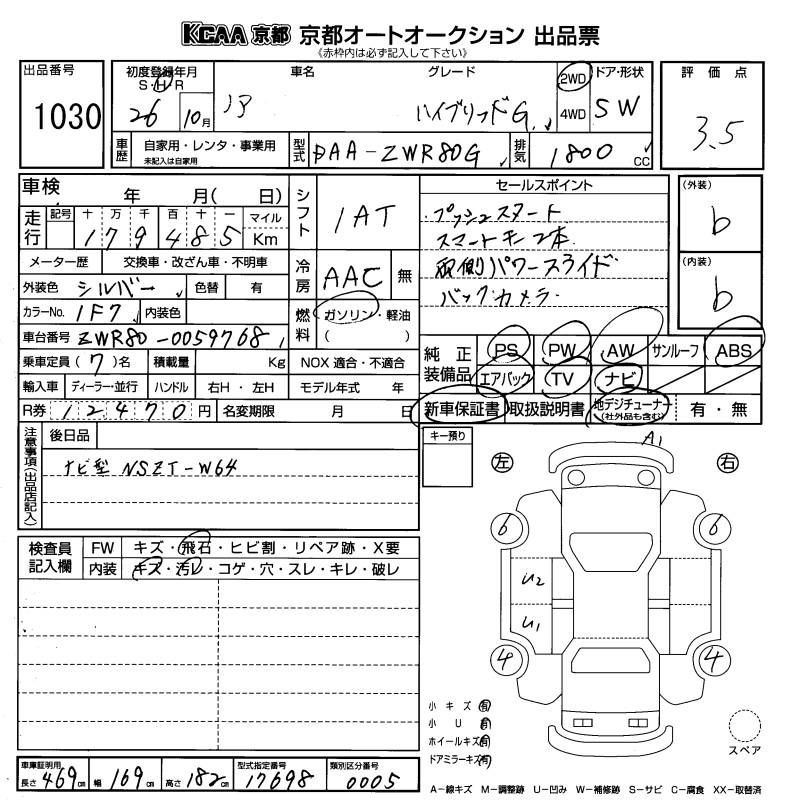 KCAA 京都 京都オートオークション 出品票
《赤枠内は必ず記入して下さい》
出品番号
1030
初度登録年月
S・H・R
26 10月
車名
ノア
グレード
ハイブリッドG
2WD
4WD
ドア・形状
SW
評価点
3.5
車歴
自家用・レンタ・事業用
未記入は自家用
型式
DAA-ZWR80G
排気
1800 cc
車検 年 月( 日)
走行
記号 十 万 千 百 十 一 マイル
179485 Km
メーター歴 交換車・改ざん車・不明車
外装色 シルバー 色替 有
カラーNo. 1F7 内装色
車台番号 ZWR80-0059768
乗車定員 (7)名 積載量 Kg
輸入車 ディーラー・並行 ハンドル 右H・左H
R券 12470円 名変期限 月 日
シフト
IAT
冷房
AAC 無
燃料
ガソリン・軽油
( )
NOX 適合・不適合
モデル年式 年
セールスポイント
・プッシュスタート
スマートキー2本
両側パワースライド
バックカメラ
(外装)
b
(内装)
b
純正装備品
PS PW AW サンルーフ ABS
エアバック TV ナビ
新車保証書 取扱説明書 地デジチューナー(社外品も含む) 有・無
注意事項(出品店記入)
後日品
ナビ型 NSZT-W64
キー預り
検査員記入欄
FW キズ・飛石・ヒビ割・リペア跡・X要
内装 キズ・汚レ・コゲ・穴・スレ・キレ・破レ
左
右
A1
6
6
U2
U1
4
4
小キズ 有
小U 有
ホイールキズ 有
ドアミラーキズ 有
スペア
車庫証明用
長さ 469cm 幅 169cm 高さ 182cm
型式指定番号
17698
類別区分番号
0005
A−線キズ M−調整跡 U−凹み W−補修跡 S−サビ C−腐食 XX−取替済